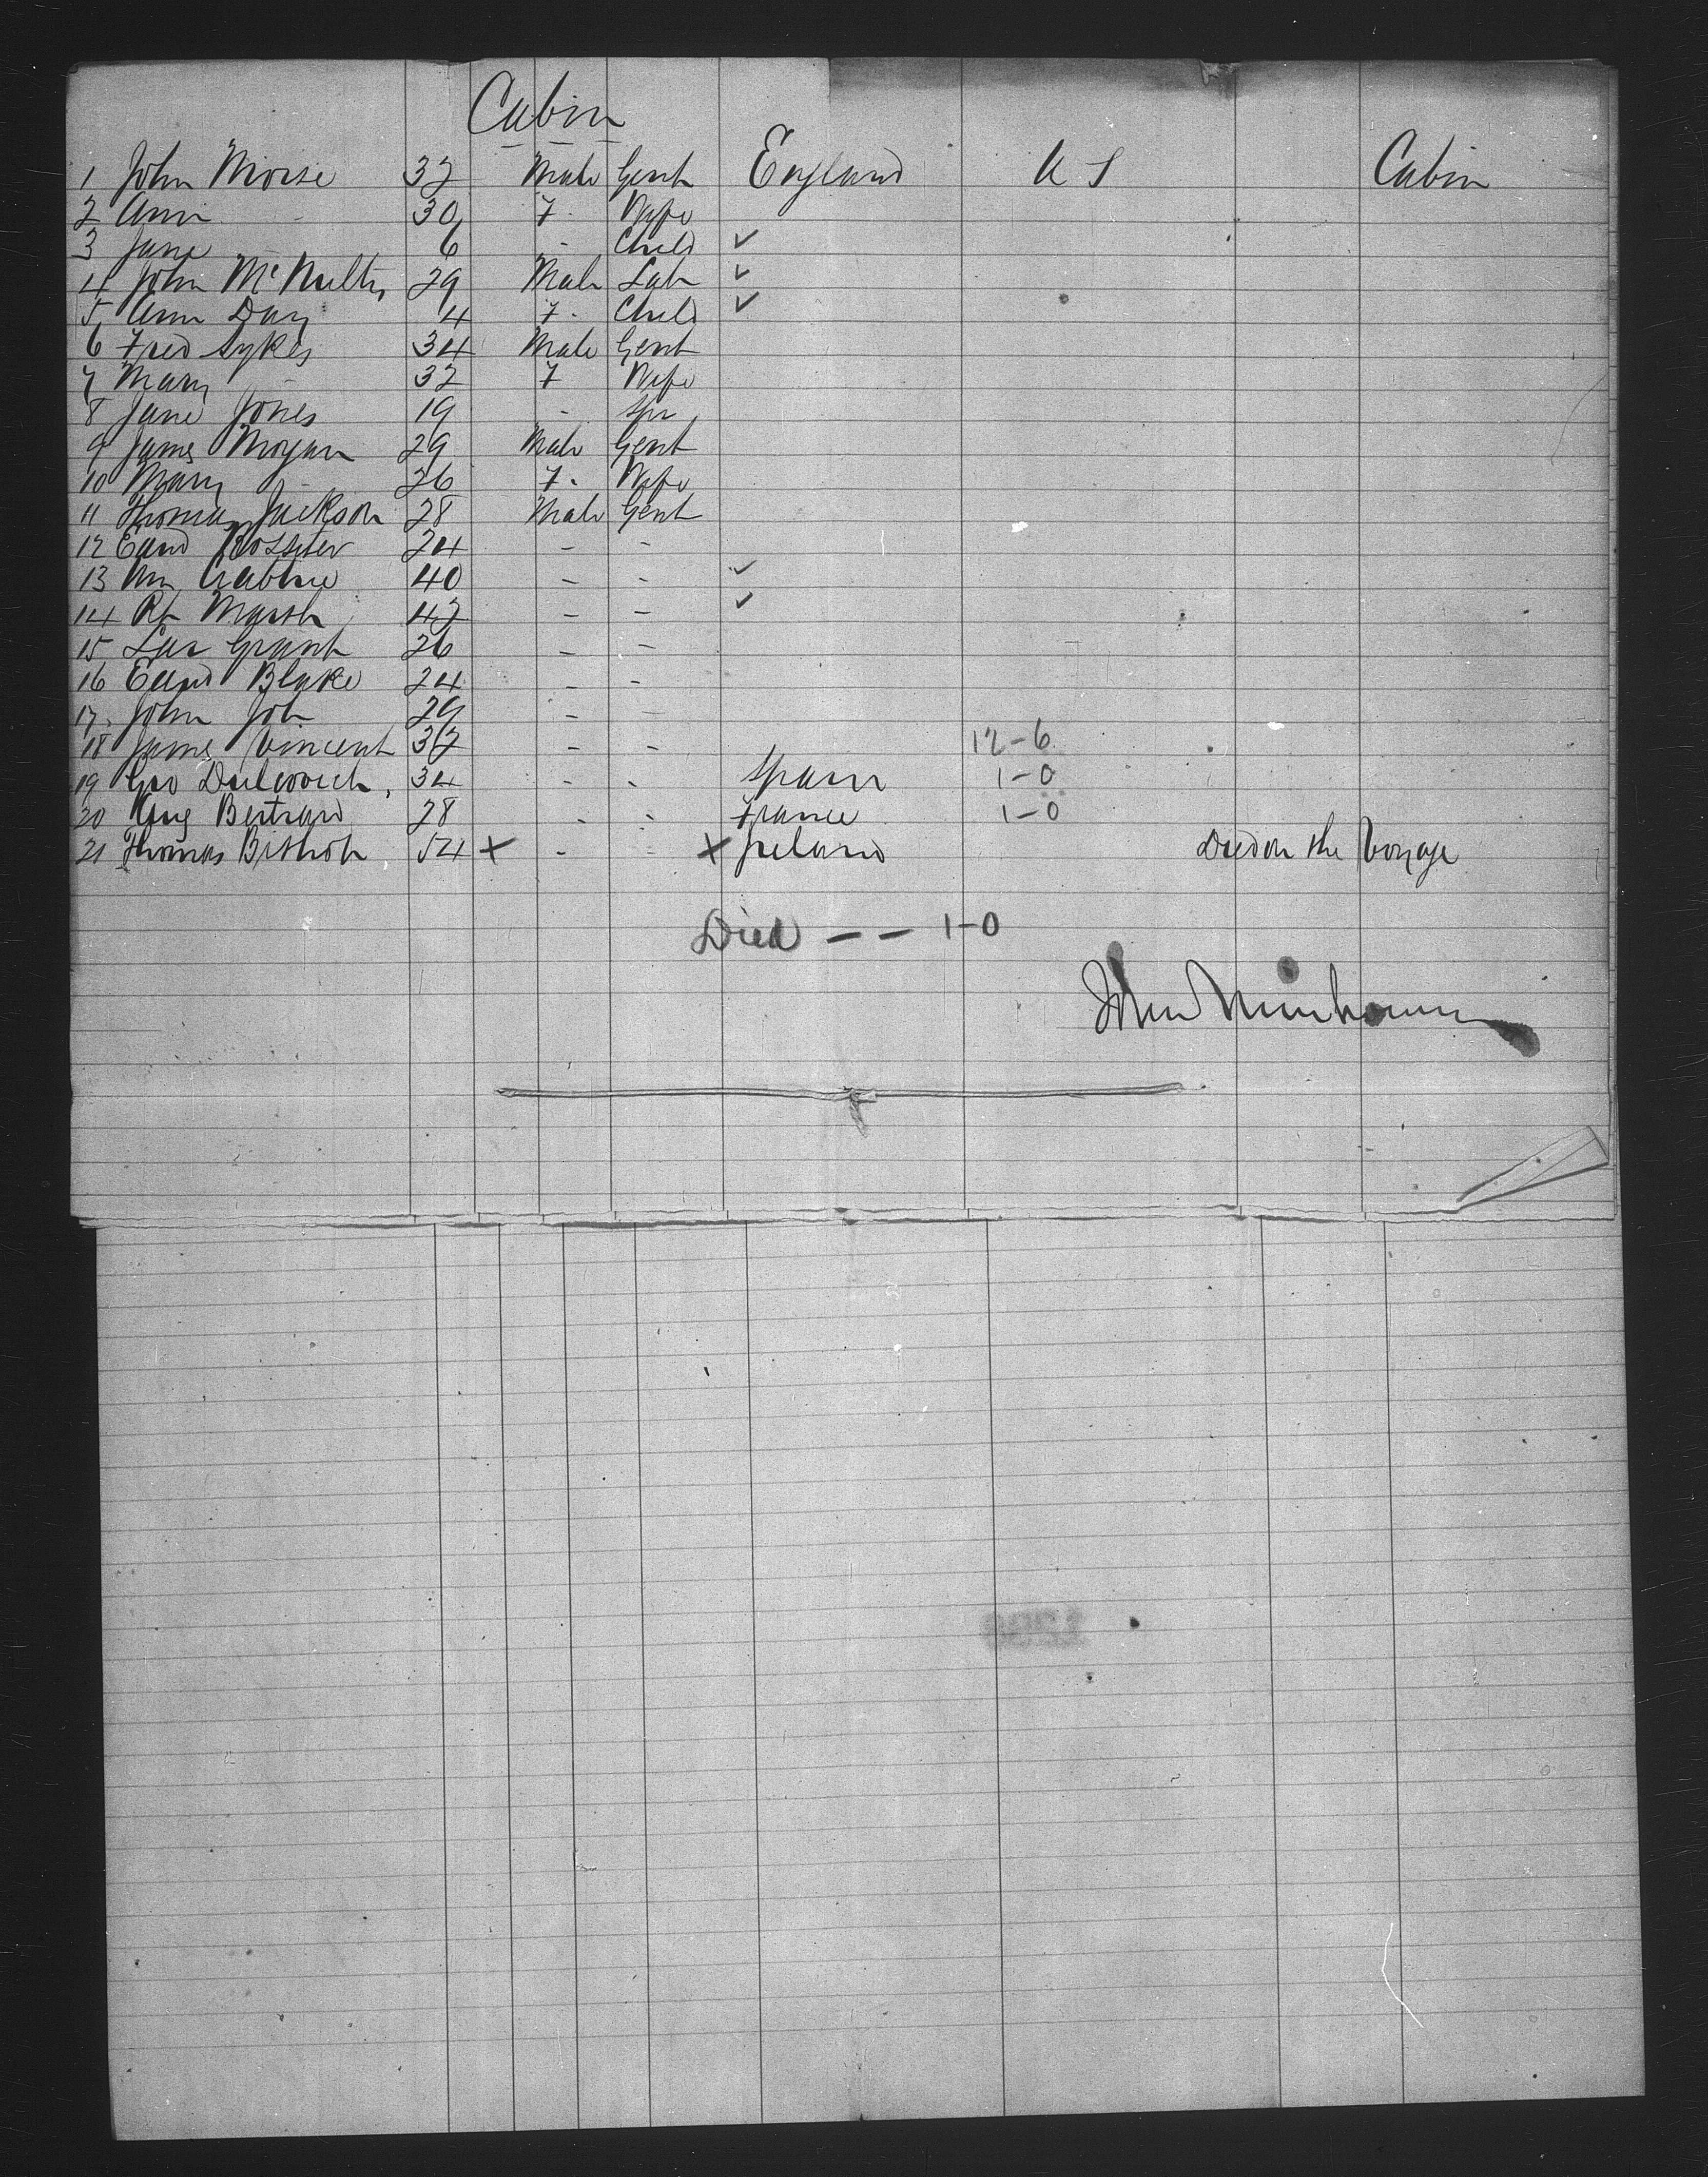 Cabin
1 John Morse 32 Male Gent England U S Cabin
2 Ann - 30 F. Wife
3 Jane 6 - Child ✓
4 John McNulty 29 Male Lab ✓
5 Ann Day 4 F. Child ✓
6 Fred Sykes 34 Male Gent
7 Mary - 32 F Wife
8 Jane Jones 19 - Spr
9 James Mogan 29 Male Gent
10 Mary - 26 F. Wife
11 Thomas Jackson 28 Male Gent
12 Edwd Rossiter 24 - -
13 Wm Crabtree 40 - - ✓
14 Rt Marsh 42 - - ✓
15 Grant 26 - -
16 Edwd Blake 24 - -
17. John Job 29 - -
18 James Vincent 32 - - 12-6
19 Geo 34 - - Spain 1-0
20 Aug Bertrand 28 - - France 1-0
21 Thomas Bishop 54 x - - x Ireland Died on the Voyage
Died - - 1-0
John